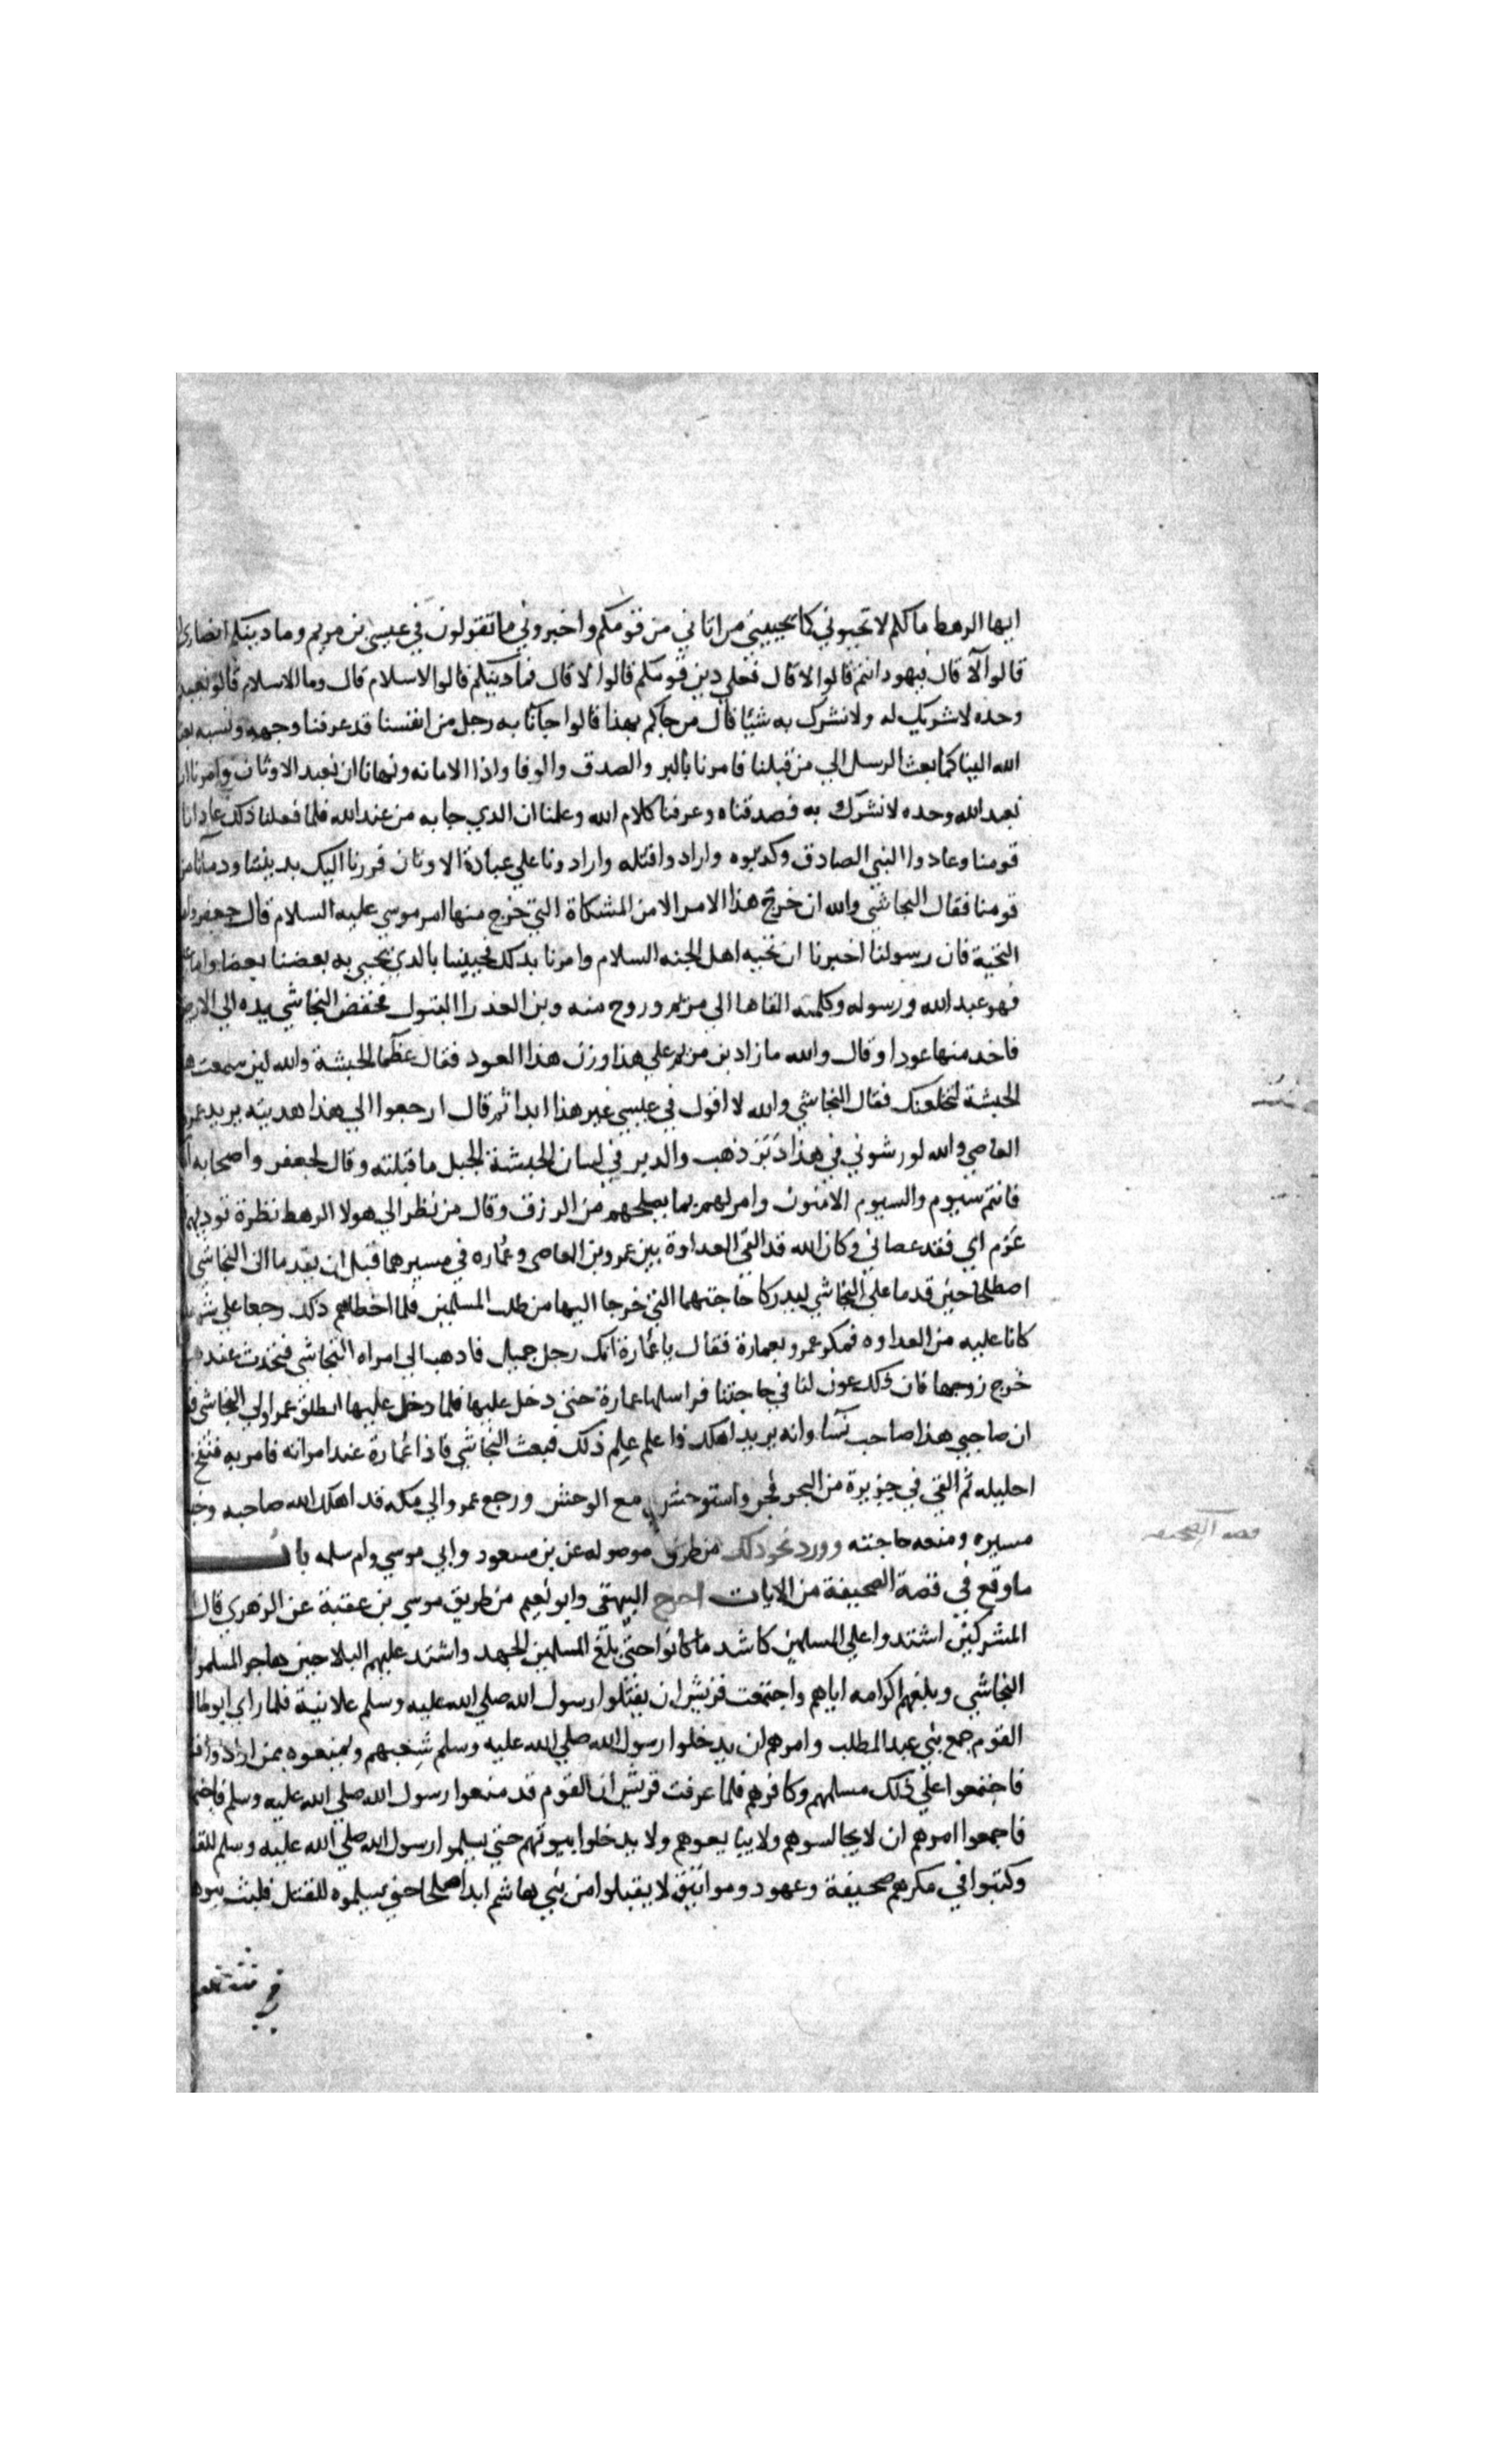 ايها الرهط ما لكم لا تحيوني كما يحييني من اتاني من قومكم واخبروني ما تقولون في عيسى بن مريم وما دينكم انصارى
قالوا لا قال فيهود انتم قالوا لا قال فعلي دين قومكم قالوا لا قال فما دينكم قالوا الاسلام قال وما الاسلام قالوا نعبد
وحده لا شريك له ولا نشرك به شيئا قال من جاكم بهذا قالوا جانا به رجل من انفسنا قد عرفنا وجهه ونسبه
الله الينا كما بعث الرسل الي من قبلنا فامرنا بالبر والصدق والوفا واذا الامانه ونهانا ان نعبد الاوثان وامرنا ان
نعبد الله وحده لا نشرك به فصدقناه وعرفنا كلام الله وعلمنا ان الذي جا به من عند الله فلما فعلنا ذلك عادانا
قومنا وعادوا النبي الصادق وكذبوه وارادوا قتله وارادونا علي عبادة الاوثان فررنا اليك بديننا ودمائنا من
قومنا فقال النجاشي والله ان خرج هذا الامر الا من المشكاة التي خرج منها امر موسي عليه السلام قال جعفر واما
التحية فان رسولنا اخبرنا ان تحيه اهل الجنه السلام وامرنا بذلك فحييناك بالذي يحيي به بعضنا بعضا واما
فهو عبد الله ورسوله وكلمته القاها الي مريم وروح منه وبن العذرا البتول فخفض النجاشي يده الي الارض
فاخذ منها عودا وقال والله ما زاد بن مريم علي هذا وزن هذا العود فقال عظما الحبشة والله لين سمعت
الحبشة لتخلعنك فقال النجاشي والله لا اقول في عيسي غير هذا ابدا ثم قال ارجعوا الي هذا هديته يريد عمرو
العاصي والله لو رشوني في هذا دبر ذهب والدبر في لسان الحبشة الجبل ما قبلته وقال لجعفر واصحابه
فانتم سيوم والسيوم الامنون وامر لهم بما يصلحهم من الرزق وقال من نظر الي هولا الرهط نظرة توذيهم
غرم اي فقد عصاني وكان الله قد القي العداوة بين عمرو بن العاصي وعماره في مسيرهما قبل ان يقدما الى النجاشي
اصطلحا حين قدما علي النجاشي ليدركا حاجتهما التي خرجا اليها من طلب المسلمين فلما اخطاهم ذلك رجعا علي شر ما
كانا عليه من العداوه فمكر عمرو بعمارة فقال يا عمارة انك رجل جميل فاذهب الي امراه النجاشي فتحدث عندها
خرج زوجها فان ذلك عون لنا في حاجتنا فراسلها عمارة حتى دخل عليها فلما دخل عليها انطلق عمرو الي النجاشي
ان صاحبي هذا صاحب نسا وانه يريد اهلك فاعلم علم ذلك فبعث النجاشي فاذا عمارة عند امراته فامر به فنفخ
احليله ثم القي في جزيرة من البحر فجن واستوحش مع الوحش ورجع عمرو الي مكه قد اهلك الله صاحبه وخيب
مسيره ومنعه حاجته وورد نحو ذلك من طرق موصوله عن بن مسعود وابي موسي وام سلمه باب
ما وقع في قصة الصحيفة من الايات اخرج البيهقي وابو نعيم من طريق موسي بن عقبة عن الزهري قال
المشركين اشتدوا علي المسلمين كاشد ما كانوا حتي بلغ المسلمين الجهد واشتد عليهم البلا حين هاجر المسلمون
النجاشي وبلغهم اكرامه اياهم واجتمعت قريش ان يقتلوا رسول الله صلي الله عليه وسلم علانية فلما راي ابو طالب
القوم جمع بني عبد المطلب وامرهم ان يدخلوا رسول الله صلي الله عليه وسلم شعبهم ويمنعوه ممن ارادوا
فاجتمعوا علي ذلك مسلمهم وكافرهم فلما عرفت قريش ان القوم قد منعوا رسول الله صلي الله عليه وسلم
فاجمعوا امرهم ان لا يجالسوهم ولا يبايعوهم ولا يدخلوا بيوتهم حتي يسلموا رسول الله صلي الله عليه وسلم للقتل
وكتبوا في مكرهم صحيفة وعهود ومواثيق لا يقبلوا من بني هاشم ابدا صلحا حتى يسلموه للقتل فلبث بنو
في شعبهم
قصه الصحيفه